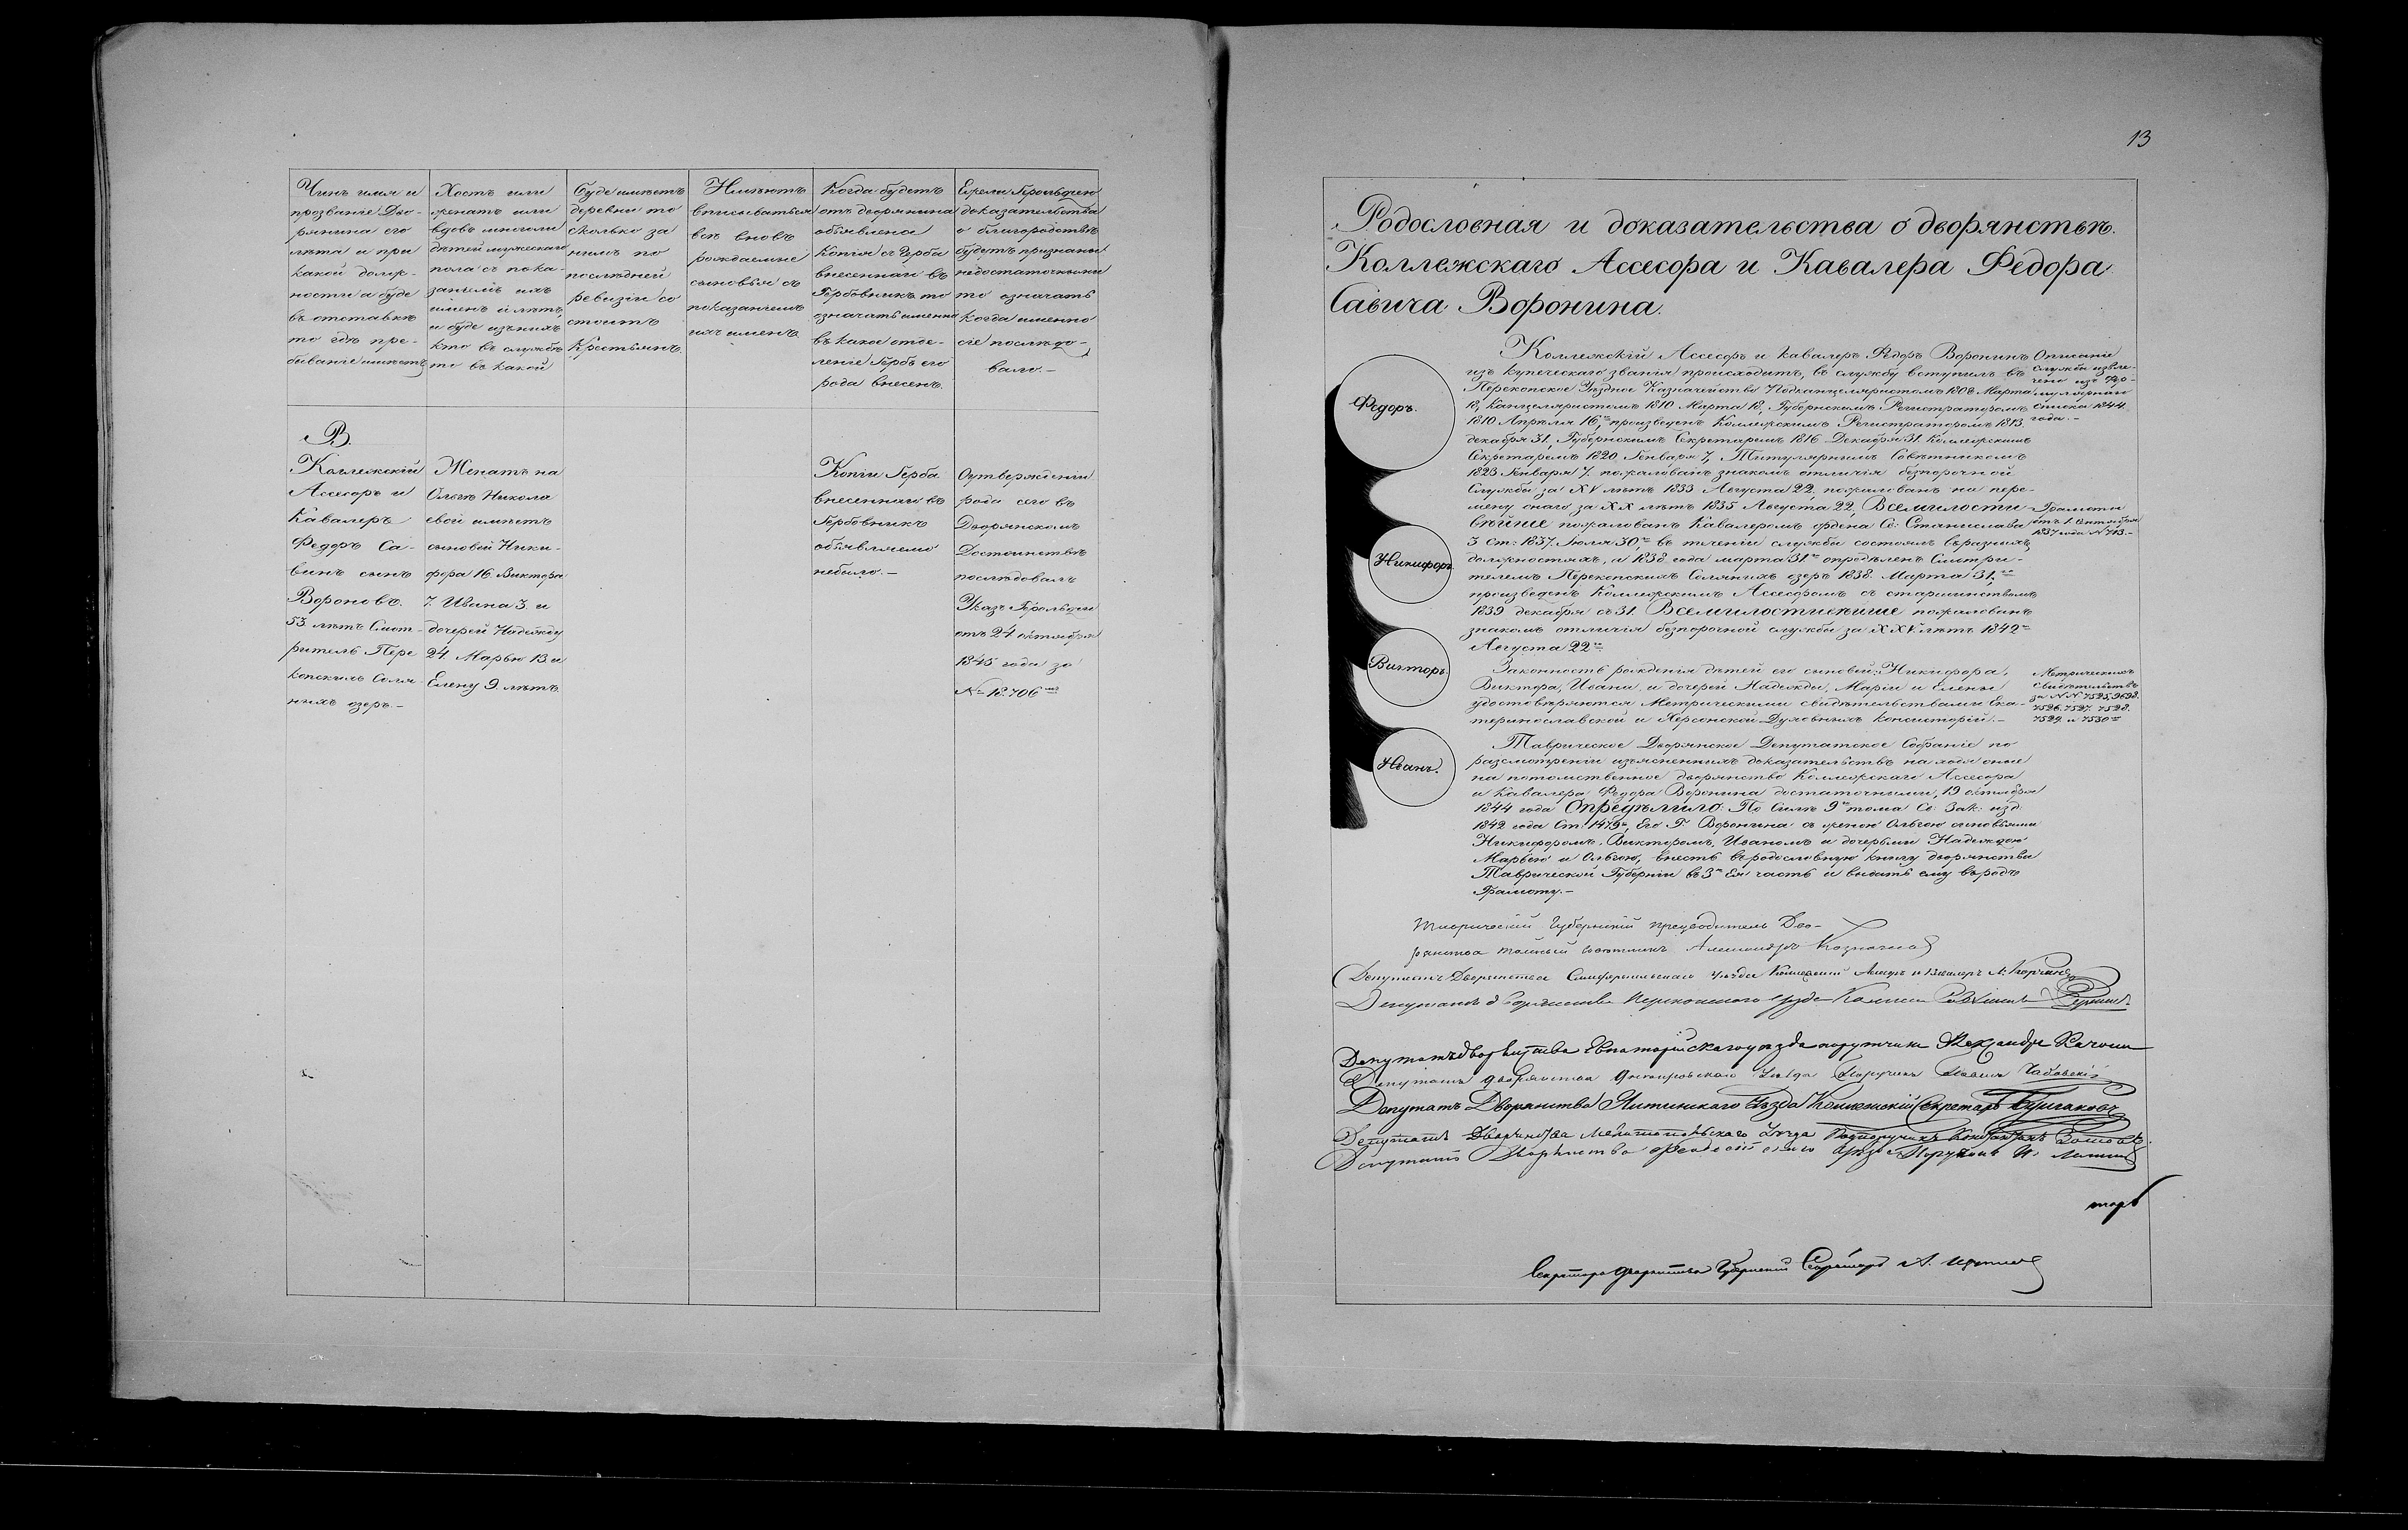 Чинъ имя и
прозваніе Дво-
рянина его
лѣта и при
какой долж-
ности а буде
въ отставкѣ
то гдѣ пре-
бываніе имѣетъ
Холостъ или
женатъ или
вдовъ многоли
дѣтей мужескаго
пола съ пока-
заніемъ ихъ
именъ и лѣтъ,
и буде изъ нихъ
кто въ службѣ
то въ какой
Буде имѣетъ
деревни то
сколько за
нимъ по
послѣдней
ревизіи со
стоитъ
Крестьянъ.
Имѣютъ
вписываться
всѣ вновь
рождаемые
сыновья съ
показаніемъ
ихъ именъ.
Когда будетъ
отъ дворянина
объявлена
копія съ Герба
внесеннаго въ
Гербовникъ то
означать именно
въ какое отде-
леніе Гербъ его
рода внесенъ.
Ежели Герольдіею
доказательства
о благородствѣ
будутъ признаны
недостаточными
то означать
когда именно
сіе послѣдо-
вало.-
В.
Коллежскій
Ассесоръ и
Кавалеръ
Федоръ Са-
винъ сынъ
Вороновъ.
53 лѣтъ Смот-
ритель Пере
копскихъ Соля-
ныхъ озеръ.-
Женатъ на
Ольгѣ Никола
евой имѣетъ
сыновей Ники-
фора 16. Виктора
7. Ивана 3. и
дочерей Надежду
24. Марью 13 и
Елену 9 лѣтъ
Копіи Герба
внесеннаго въ
Гербовникъ
объявляемо
небыло.-
Оутвержденіи
рода сего въ
Дворянскомъ
Достоинствѣ
послѣдовалъ
Указъ Герольдіи
отъ 24 октября
1845 года за
№ 18.706
13
Родословная и доказательства о дворянствѣ
Коллежскаго Ассесора и Кавалера Федора
Савича Воронина.
Федоръ.
Никифоръ
Викторъ
Иванъ.
Коллежскій Ассесоръ и Кавалеръ Федоръ Воронинъ
изъ купеческаго званія происходитъ, въ службу вступилъ въ
Перекопское Уѣздное Казначейство Подканцеляристомъ 1808 Марта
18, Канцеляристомъ 1810 Марта 18, Губернскимъ Регистраторомъ
1810 Апрѣля 16, произведенъ Коллежскимъ Регистраторомъ 1813
декабря 31, Губернскимъ Секретаремъ 1816 Декабря 31. Коллежскимъ
Секретаремъ 1820 Генваря 7, Титулярнымъ Совѣтникомъ
1823 Генваря 7. пожалованъ знакомъ отличія безпорочной
Службы за XV лѣтъ 1833 Августа 22, пожалованъ на пере-
мену онаго за XX лѣтъ 1835 Августа 22, Всемилости-
вѣйше пожалованъ Кавалеромъ ордена Св: Станислава
3 ст: 1837. Іюля 30, въ теченіи службы состоялъ въ разныхъ
должностяхъ, и 1838 года марта 31 опредѣленъ Смотри-
телемъ Перекопскихъ Соляныхъ озеръ 1838 Марта 31,
произведенъ Коллежскимъ Ассесоромъ съ старшинствомъ
1839 декабря съ 31. Всемилостивѣйше пожалованъ
знакомъ отличія безпорочной службы за XXV лѣтъ 1842
Августа 22
Описаніе
службы извле-
чено изъ фор-
мулярнаго
списка 1844
года.-
Грамоты
отъ 1 Сентября
1837 года № 713.-
Законность рожденія дѣтей его сыновей: Никифора,
Виктора, Ивана, и дочерей Надежды, Маріи и Елены
удостовѣряются Метрическими свидѣтельствами Ека-
теринославской и Херсонской Духовныхъ Консисторій.-
Метрическихъ
свидѣтельствъ
за №№ 7525, 9698.
7526. 7527. 7528.
7529. и 7530
Таврическое Дворянское Депутатское Собраніе по
разсмотреніи изъясненныхъ доказательствъ находя оные
на потомственное дворянство Коллежскаго Ассесора
и Кавалера Федора Воронина достаточными, 19 октября
1844 года Опредѣлило: По Силѣ 9 тома Св: Зак: изд:
1842 года Ст. 1479, Его Г. Воронина съ женою Ольгою сыновьями
Никифоромъ, Викторомъ, Иваномъ и дочерьми Надеждою
Марьею и Ольгою, внесть въ родословную книгу дворянства
Таврической Губерніи въ 3 Ея часть и выдать ему въ родъ
Грамоту.-
Таврическій Губернскій предводитель Дво-
рянства тайный совѣтникъ Александръ Казначеев
Депутатъ Дворянства Симферопольскаго уѣзда Коллежскій Ассесоръ и Кавалеръ
Депутатъ дворянства Перекопскаго уѣзда
Депутатъ дворянства Евпаторійскаго уѣзда поручикъ Александръ
Депутатъ дворянства Днѣпровскаго Уѣзда Поручикъ
Депутатъ Дворянства Ялтинскаго Уѣзда Коллежскій Секретарь
Депутатъ Дворянства Мелитопольскаго Уѣзда Подпоручикъ
Депутатъ Дворянства Феодосійскаго Уѣзда Поручикъ
Секретарь дворянства Губернскій Секретарь